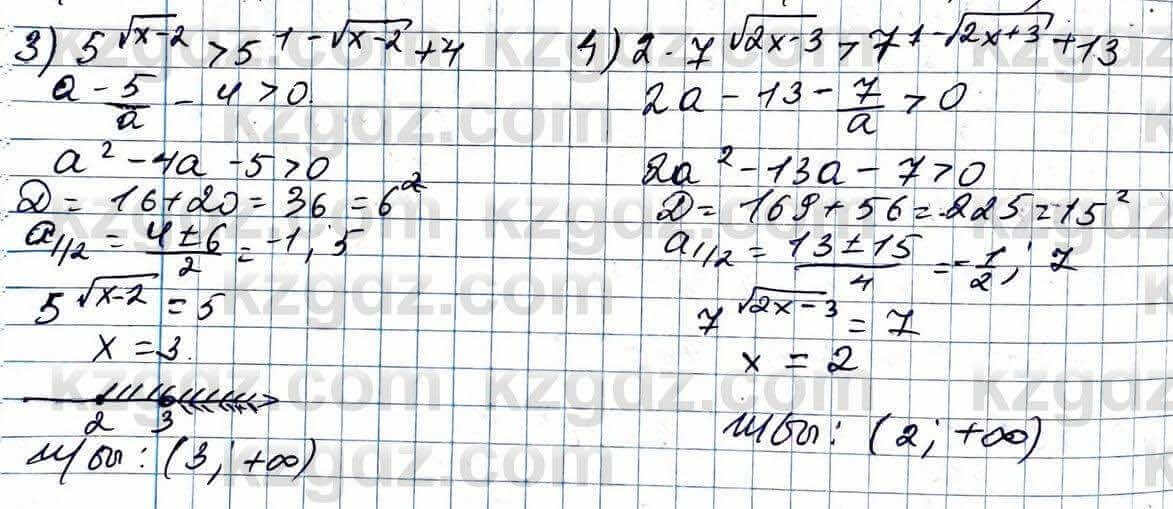 3) 5^{√x-2} > 5^{1-√x-2} + 4
a - 5/a - 4 > 0.
a² - 4a - 5 > 0
D = 16+20 = 36 = 6²
a_{1/2} = (4±6)/2 = -1; 5
5^{√x-2} = 5
x = 3.
2 3
Ж/бы: (3; +∞)
4) 2 · 7^{√2x-3} > 7^{1-√2x+3} + 13
2a - 13 - 7/a > 0
2a² - 13a - 7 > 0
D = 169 + 56 = 225 = 15²
a_{1/2} = (13±15)/4 = -1/2; 7
7^{√2x-3} = 7
x = 2
Ж/бы: (2; +∞)
kzgdz.com